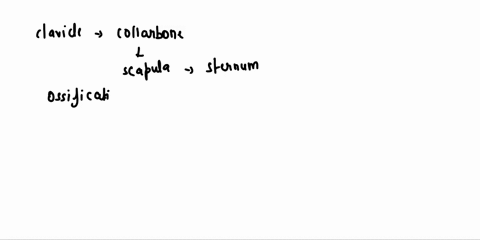 clavicle → collarbone
↓
scapula → sternum
ossificati